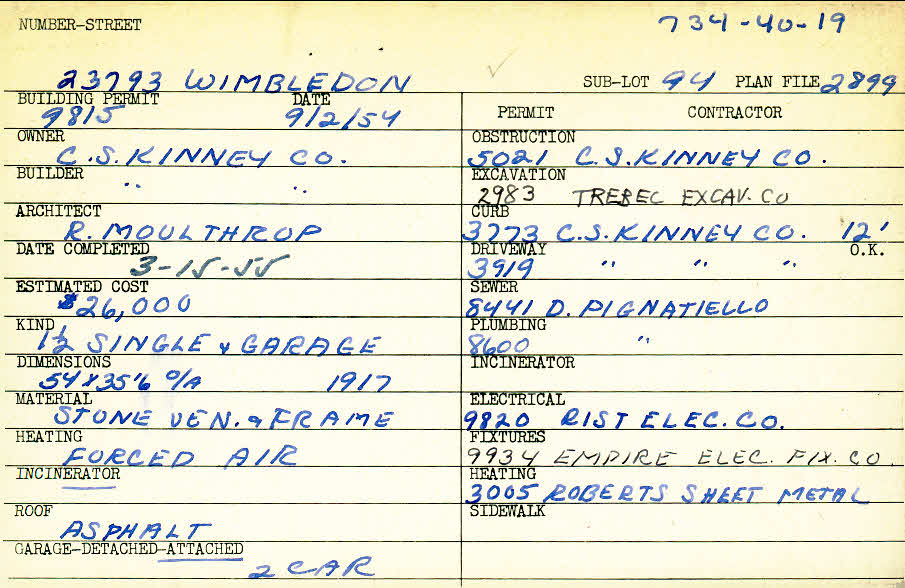 NUMBER-STREET 734-40-19
23793 WIMBLEDON SUB-LOT 94 PLAN FILE 2899
BUILDING PERMIT DATE
9815 9/2/54
OWNER
C.S. KINNEY CO.
BUILDER
" "
ARCHITECT
R. MOULTHROP
DATE COMPLETED
3-15-55
ESTIMATED COST
$26,000
KIND
1½ SINGLE & GARAGE
DIMENSIONS
54' x 35'6 O/A 1917
MATERIAL
STONE VEN. & FRAME
HEATING
FORCED AIR
INCINERATOR
ROOF
ASPHALT
GARAGE-DETACHED-ATTACHED
2 CAR
PERMIT CONTRACTOR
OBSTRUCTION
5021 C.S. KINNEY CO.
EXCAVATION
2983 TREBEC EXCAV. CO
CURB
3773 C.S. KINNEY CO. 12'
DRIVEWAY O.K.
3919 " " "
SEWER
8441 D. PIGNATIELLO
PLUMBING
8600 "
INCINERATOR
ELECTRICAL
9820 RIST ELEC. CO.
FIXTURES
9934 EMPIRE ELEC. FIX. CO.
HEATING
3005 ROBERTS SHEET METAL
SIDEWALK